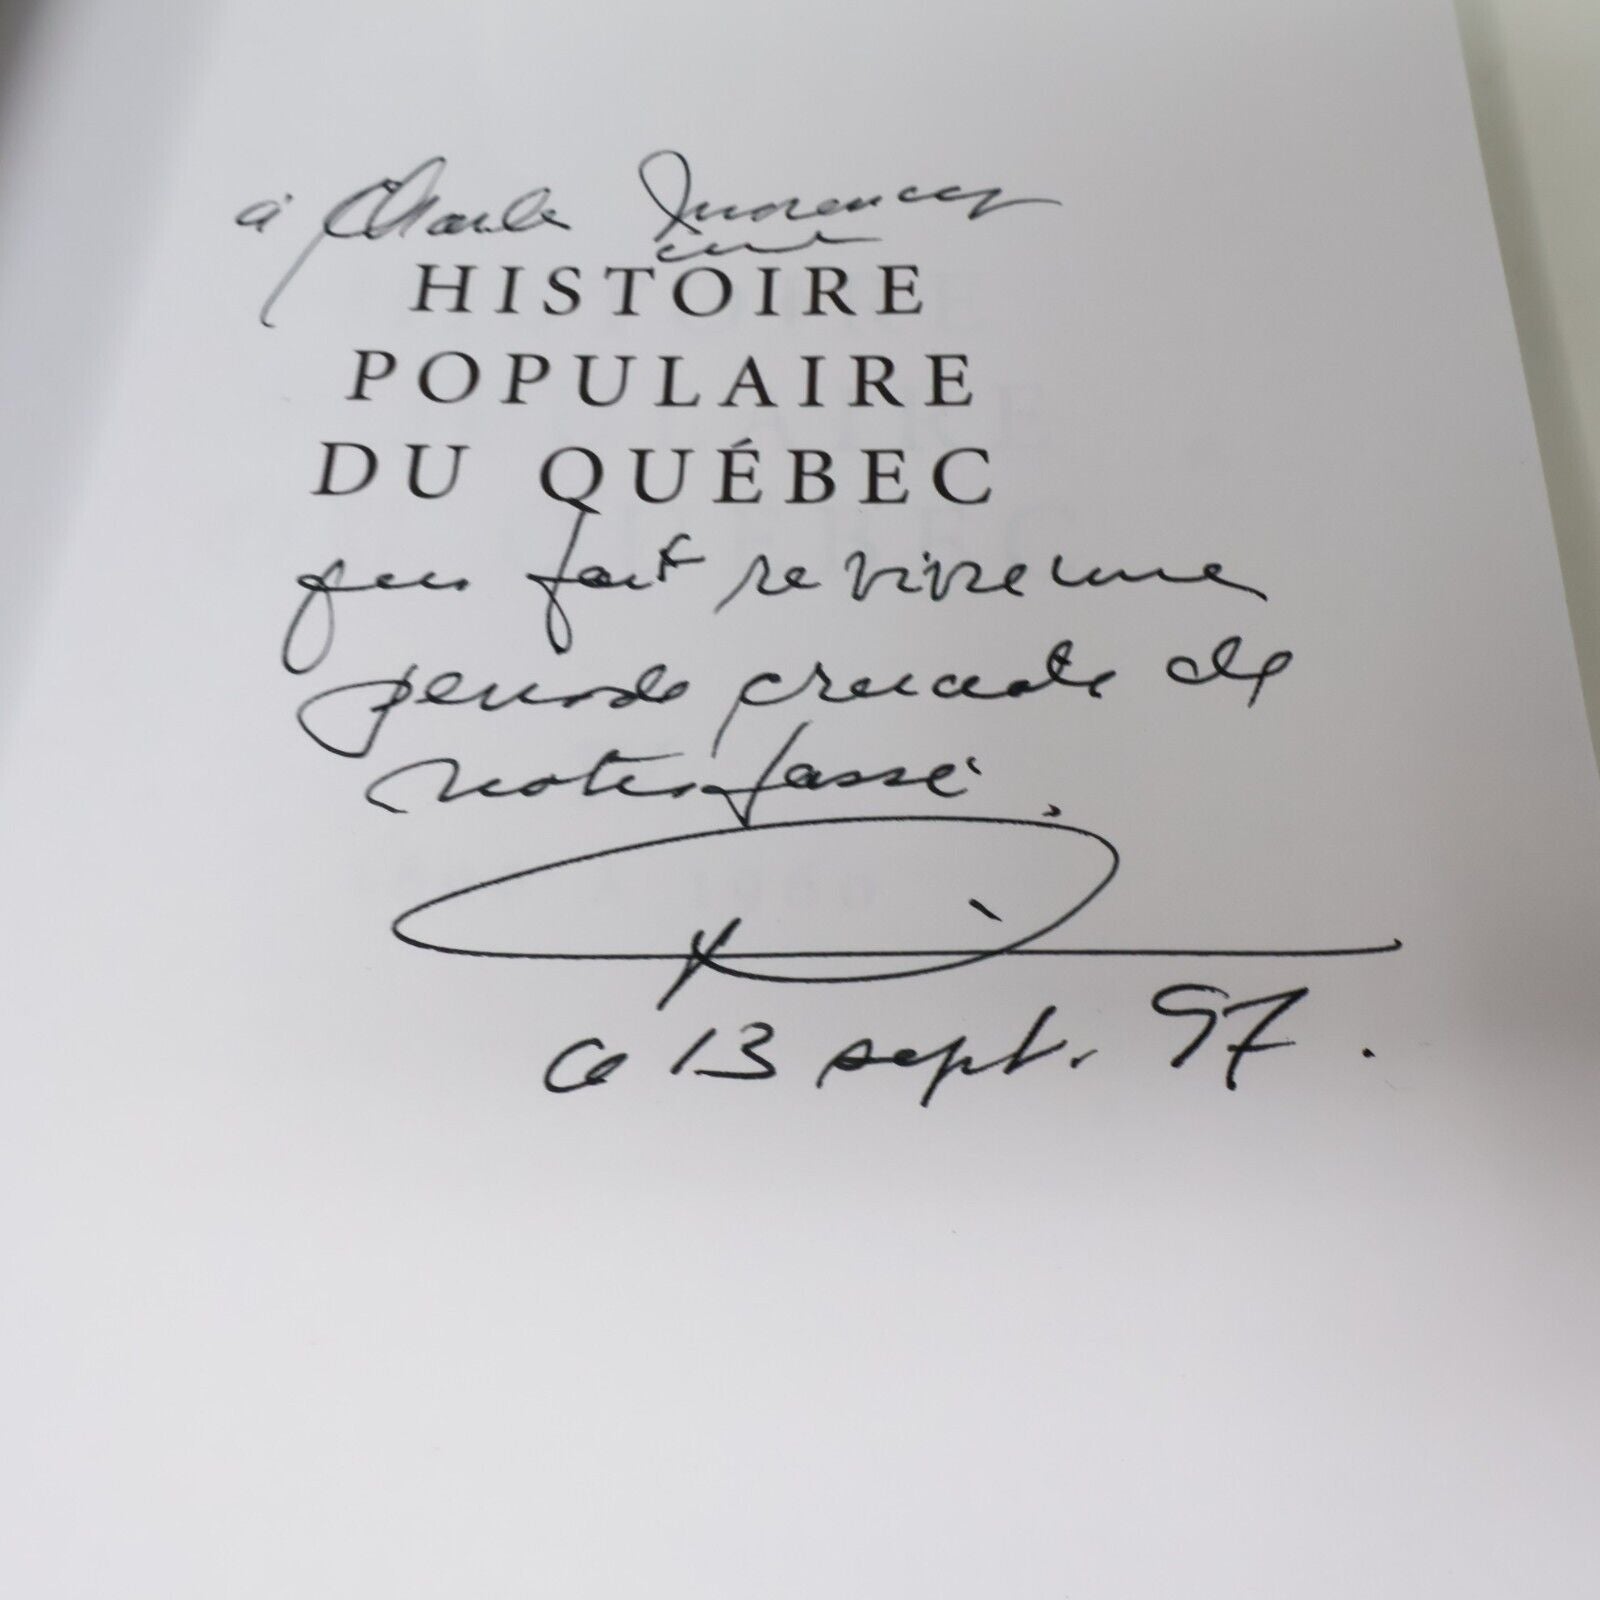 à Charles
cette
HISTOIRE
POPULAIRE
DU QUÉBEC
qui fait revivre une
période cruciale de
notre passé.
ce 13 sept. 97.